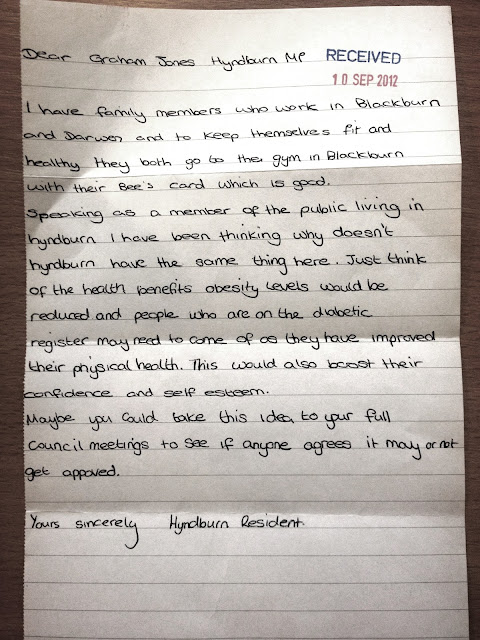 Dear Graham Jones Hyndburn MP RECEIVED
10 SEP 2012
I have family members who work in Blackburn
and Darwen and to keep themselves fit and
healthy they both go to the gym in Blackburn
with their Bee's card which is good.
Speaking as a member of the public living in
hyndburn I have been thinking why doesn't
hyndburn have the same thing here. Just think
of the health benefits obesity levels would be
reduced and people who are on the diabetic
register may need to come of as they have improved
their physical health. This would also boost their
confidence and self esteem.
Maybe you could take this idea to your full
Council meetings to see if anyone agrees it may or not
get appoved.
Yours sincerely Hyndburn Resident.